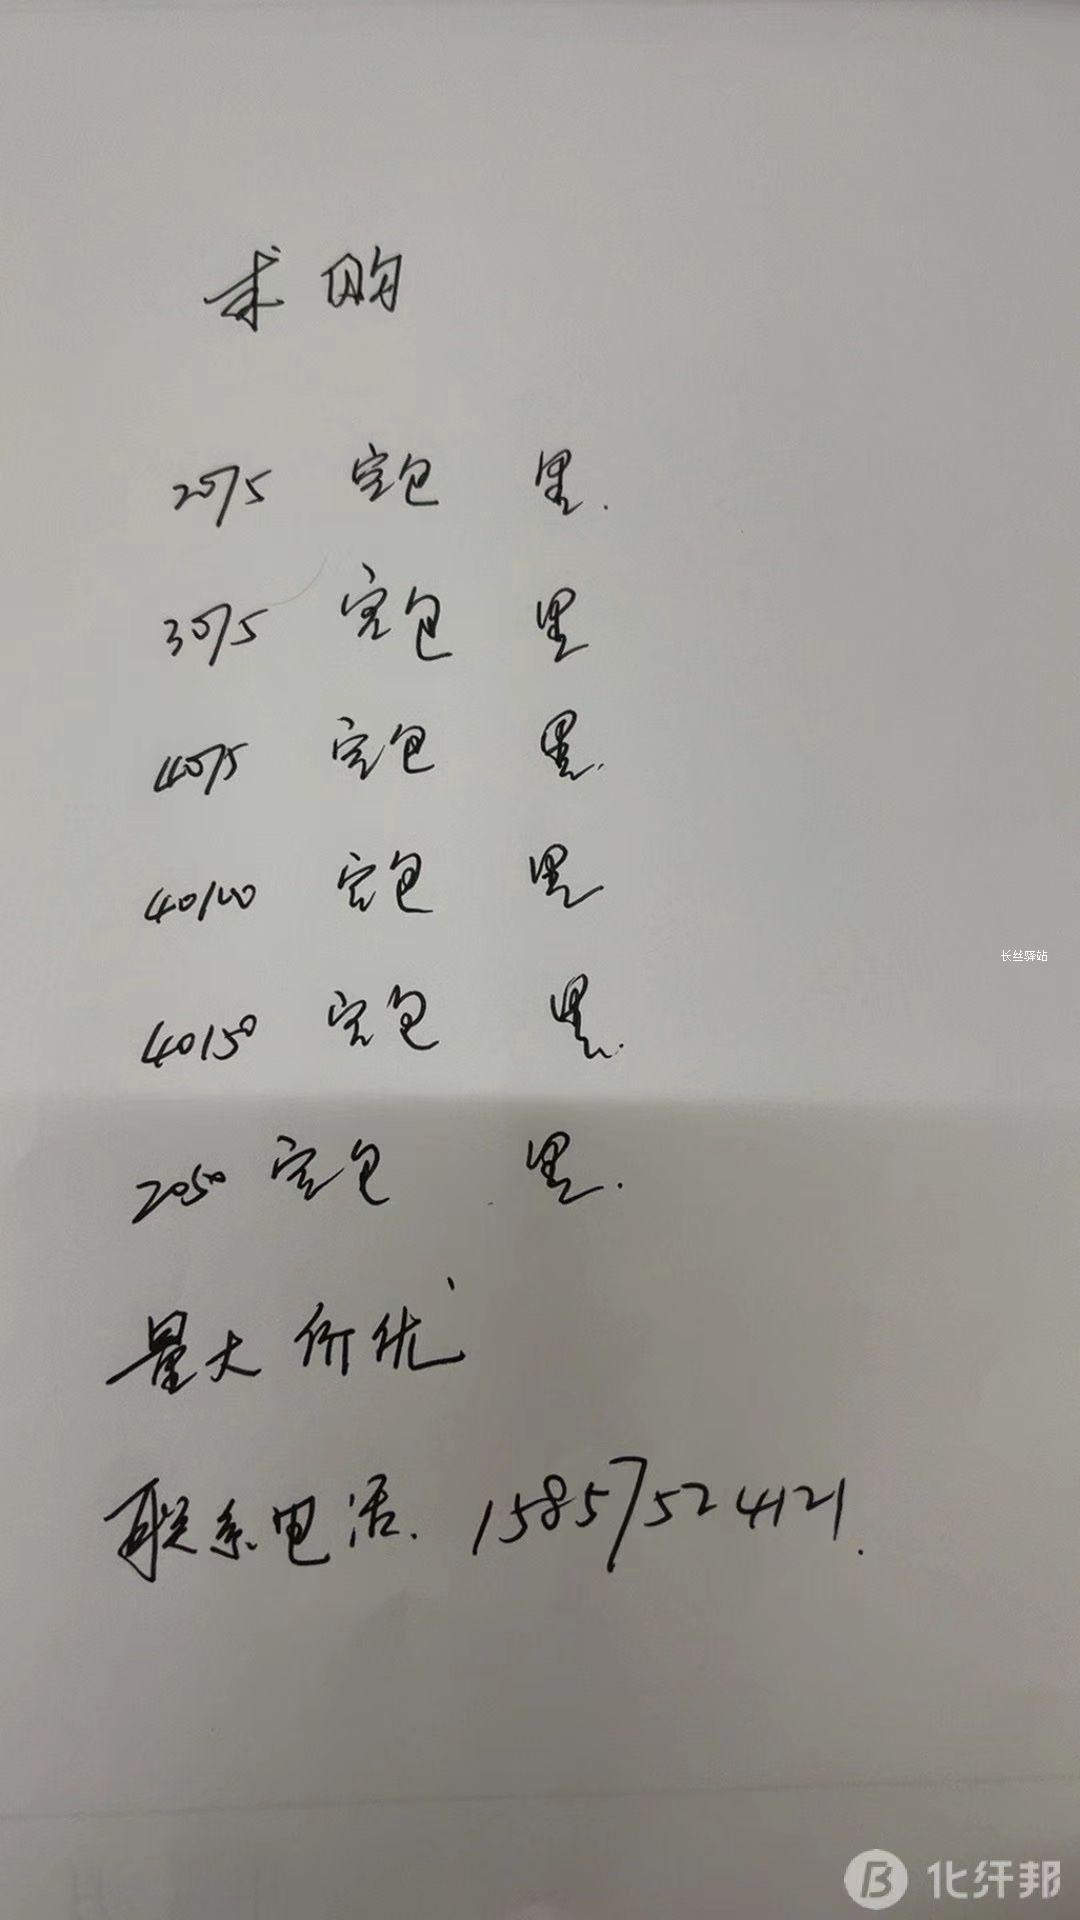 求购
2075 空包 黑.
3075 空包 黑
4075 空包 黑.
40100 空包 黑
40150 空包 黑.
2050 空包 黑.
量大价优
联系电话. 15857524121.
长丝驿站
化纤邦